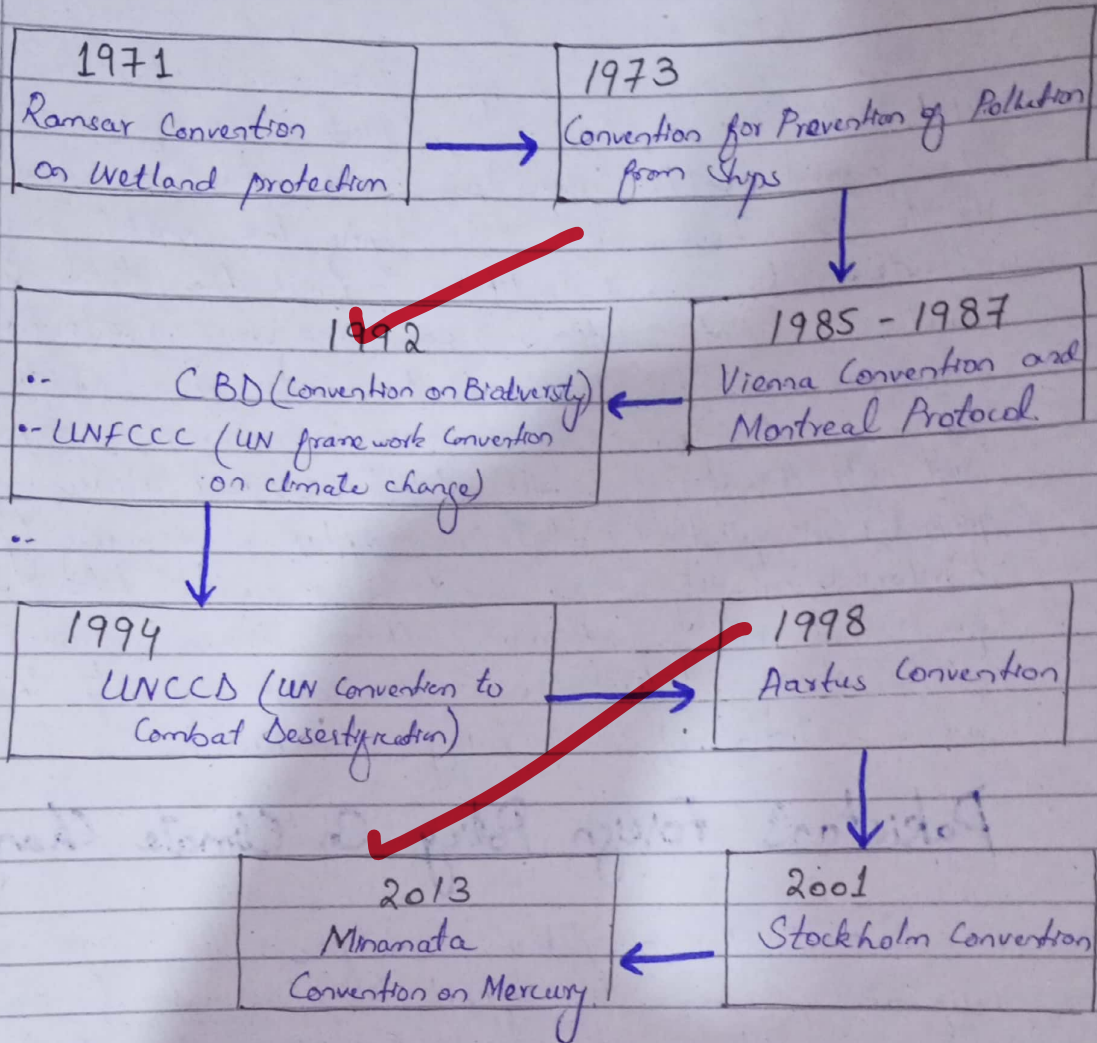 1971
Ramsar Convention
on Wetland protection
1973
Convention for Prevention of Pollution
from Ships
1985 - 1987
Vienna Convention and
Montreal Protocol.
1992
CBD (Convention on Biodversty)
UNFCCC (UN frame work Convention
on climate change)
1994
UNCCD (UN Convention to
Combat Desertification)
1998
Aartus Convention
2001
Stockholm Convention
2013
Minamata
Convention on Mercury